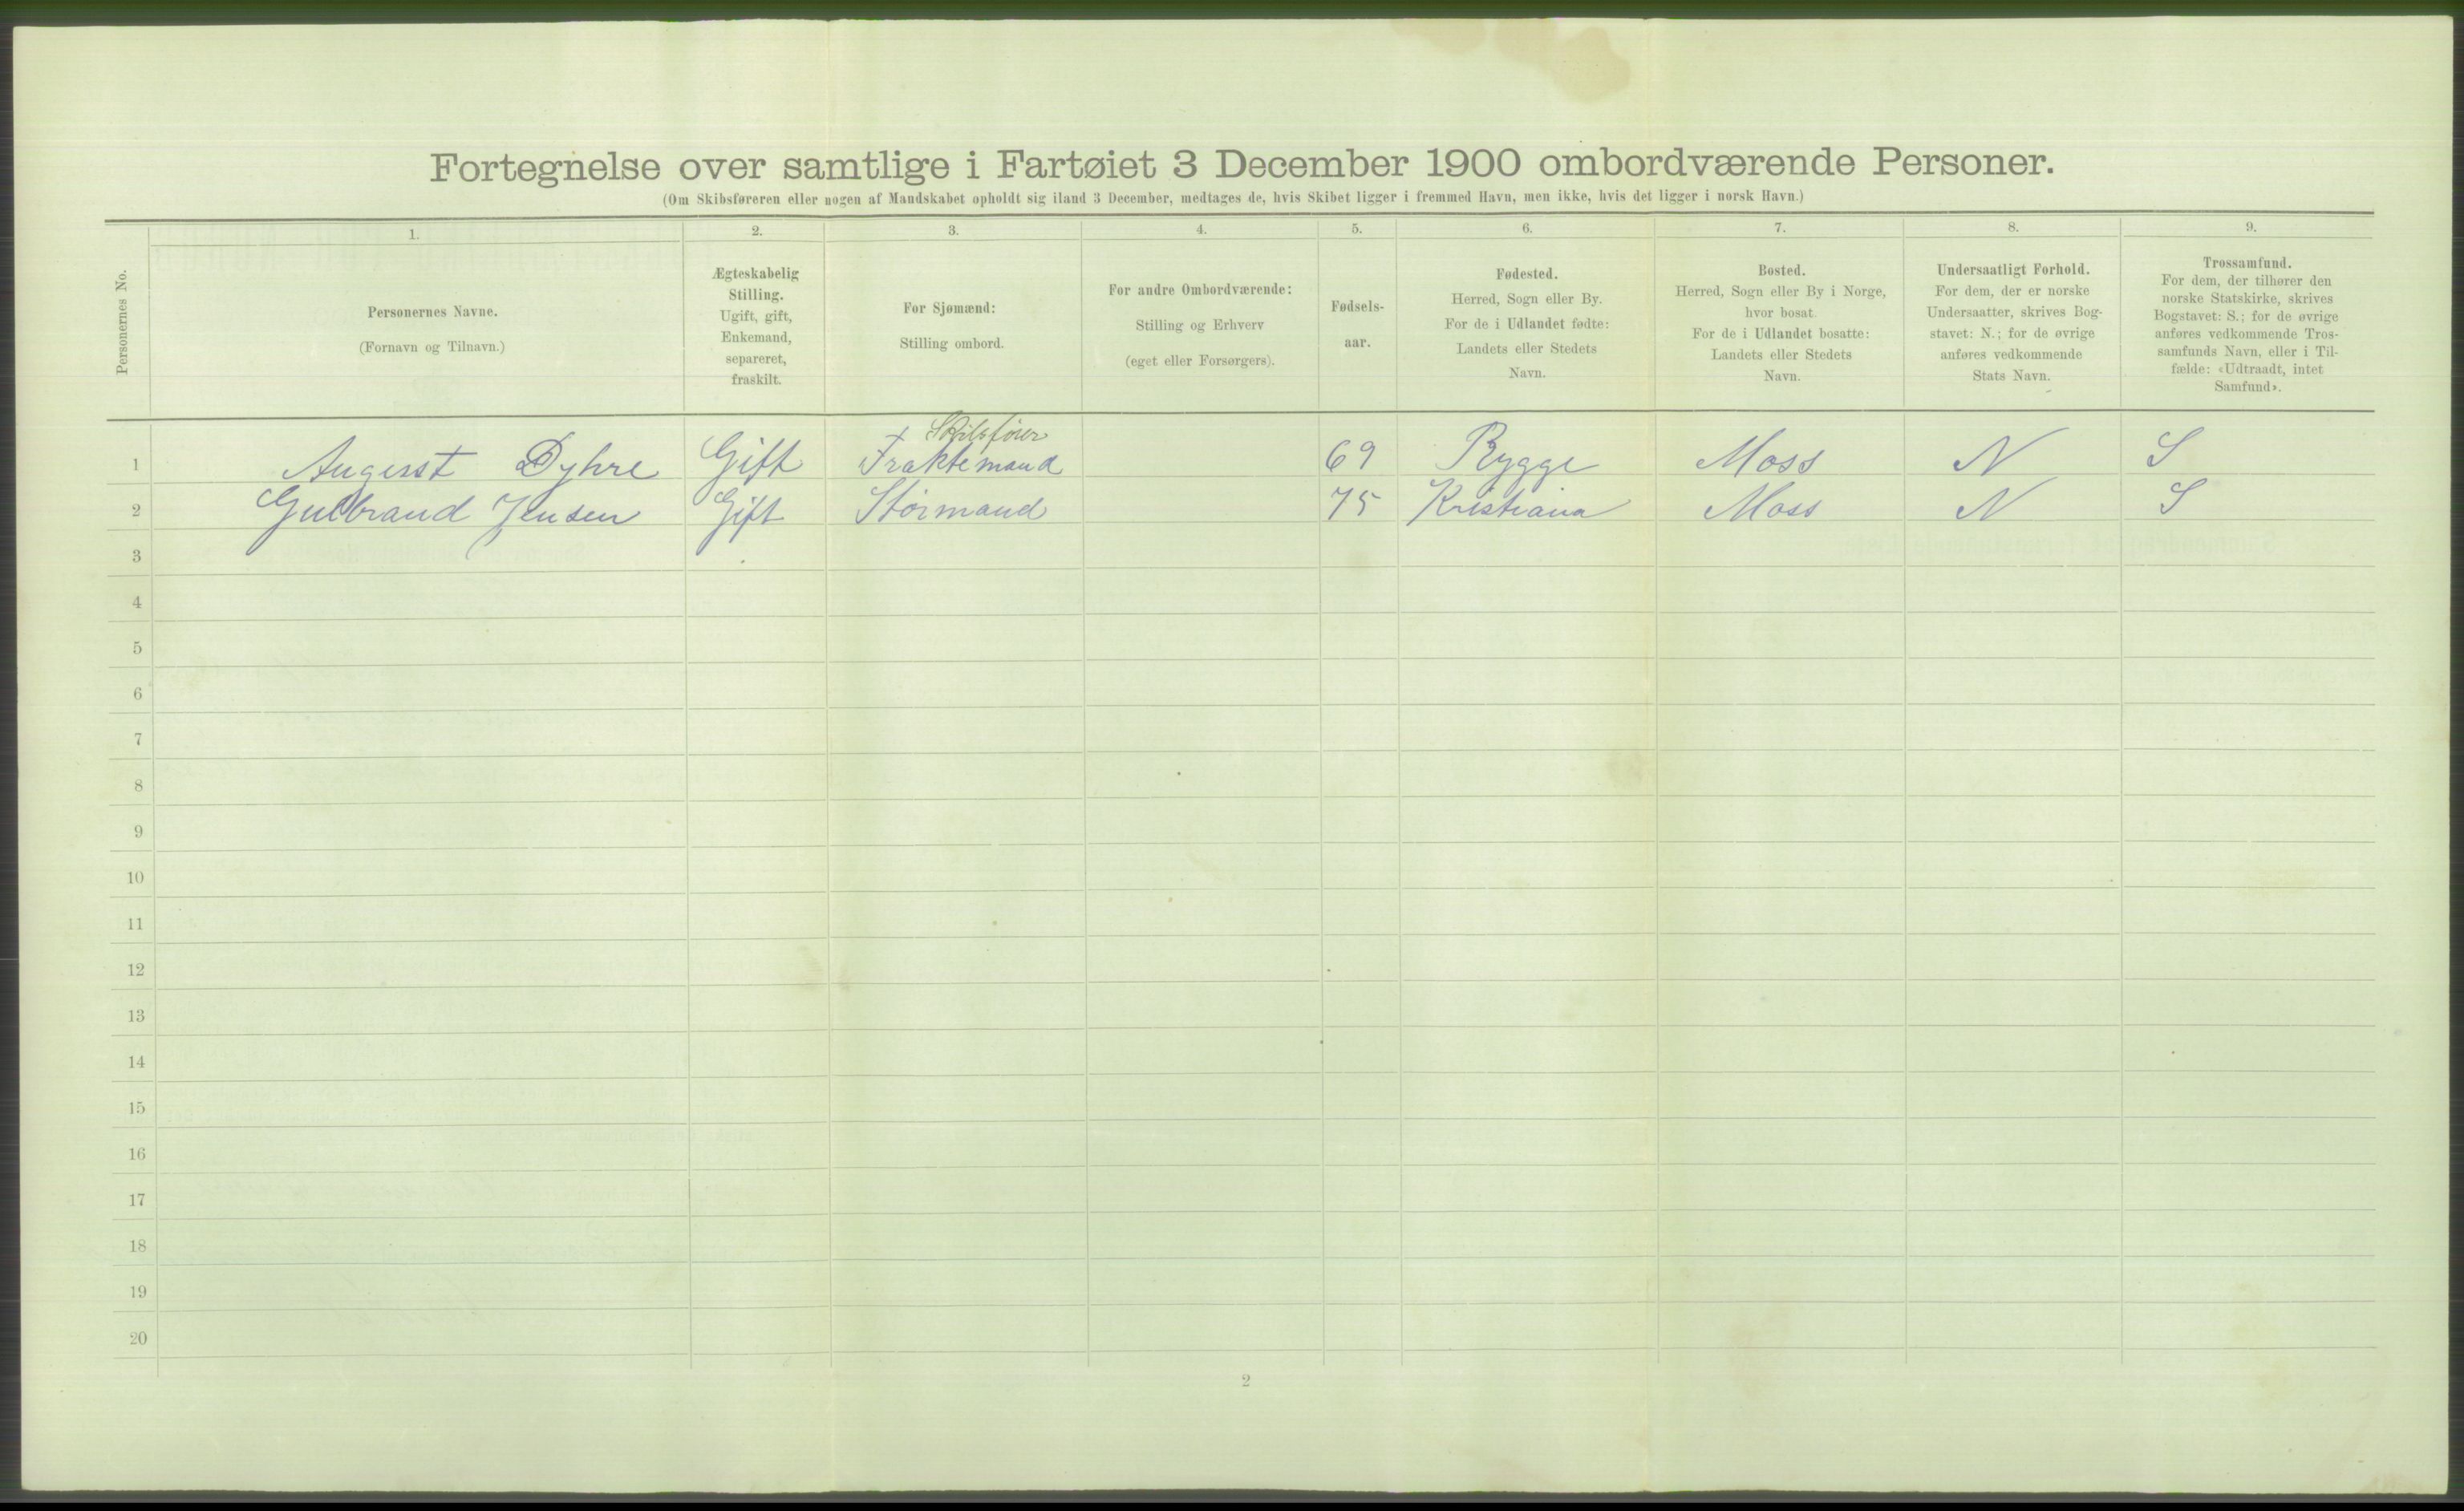 Fortegnelse over samtlige i Fartøiet 3 December 1900 ombordværende Personer.
(Om Skibsføreren eller nogen af Mandskabet opholdt sig iland 3 December, medtages de, hvis Skibet ligger i fremmed Havn, men ikke, hvis det ligger i norsk Havn.)
Personernes No.
1.
Personernes Navne.
(Fornavn og Tilnavn.)
2.
Ægteskabelig
Stilling.
Ugift, gift,
Enkemand,
separeret,
fraskilt.
3.
For Sjømænd:
Stilling ombord.
4.
For andre Ombordværende:
Stilling og Erhverv
(eget eller Forsørgers).
5.
Fødsels-
aar.
6.
Fødested.
Herred, Sogn eller By.
For de i Udlandet fødte:
Landets eller Stedets
Navn.
7.
Bosted.
Herred, Sogn eller By i Norge,
hvor bosat.
For de i Udlandet bosatte:
Landets eller Stedets
Navn.
8.
Undersaatligt Forhold.
For dem, der er norske
Undersaatter, skrives Bog-
stavet: N.; for de øvrige
anføres vedkommende
Stats Navn.
9.
Trossamfund.
For dem, der tilhører den
norske Statskirke, skrives
Bogstavet: S.; for de øvrige
anføres vedkommende Tros-
samfunds Navn, eller i Til-
fælde: «Udtraadt, intet
Samfund».
Skibsfører
1 August Dyhre Gift Fraktemand 69 Rygge Moss N S
2 Gulbrand Jensen Gift Stormand 75 Kristiania Moss N S
3
4
5
6
7
8
9
10
11
12
13
14
15
16
17
18
19
20
2